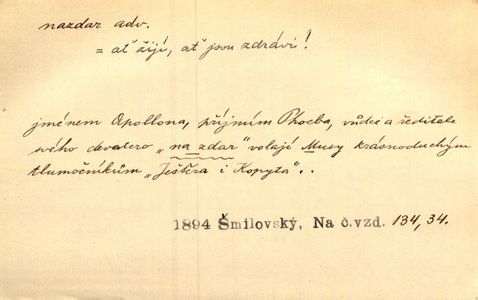 nazdar adv.
= ať žijí, ať jsou zdrávi!
jménem Apollona, příjmím Phoeba, vůdce a ředitele
svého devatero „na zdar" volají Musy krásnoduchým
tlumočníkům „Ještěra i Kopyta"..
1894 Šmilovský, Na č.vzd. 134,34.